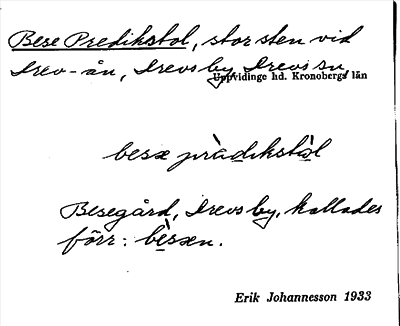 Bese Predikstol, stor sten vid
Drev-ån, Drevs by, Drevs sn,
Uppvidinge hd. Kronobergs län
besæ prὰdikstὸl
Besegård, Drevs by, kallades
förr: bèsæn.
Erik Johannesson 1933